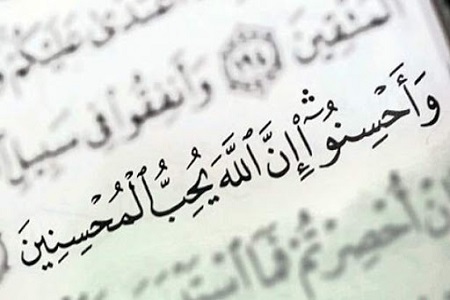 عَلَيْكُمْ
ٱلْمُتَّقِينَ ١٩٤ وَأَنفِقُوا۟ فِى سَبِيلِ
وَأَحْسِنُوٓا۟ۛ إِنَّ ٱللَّهَ يُحِبُّ ٱلْمُحْسِنِينَ
أُحْصِرْتُمْ فَمَا